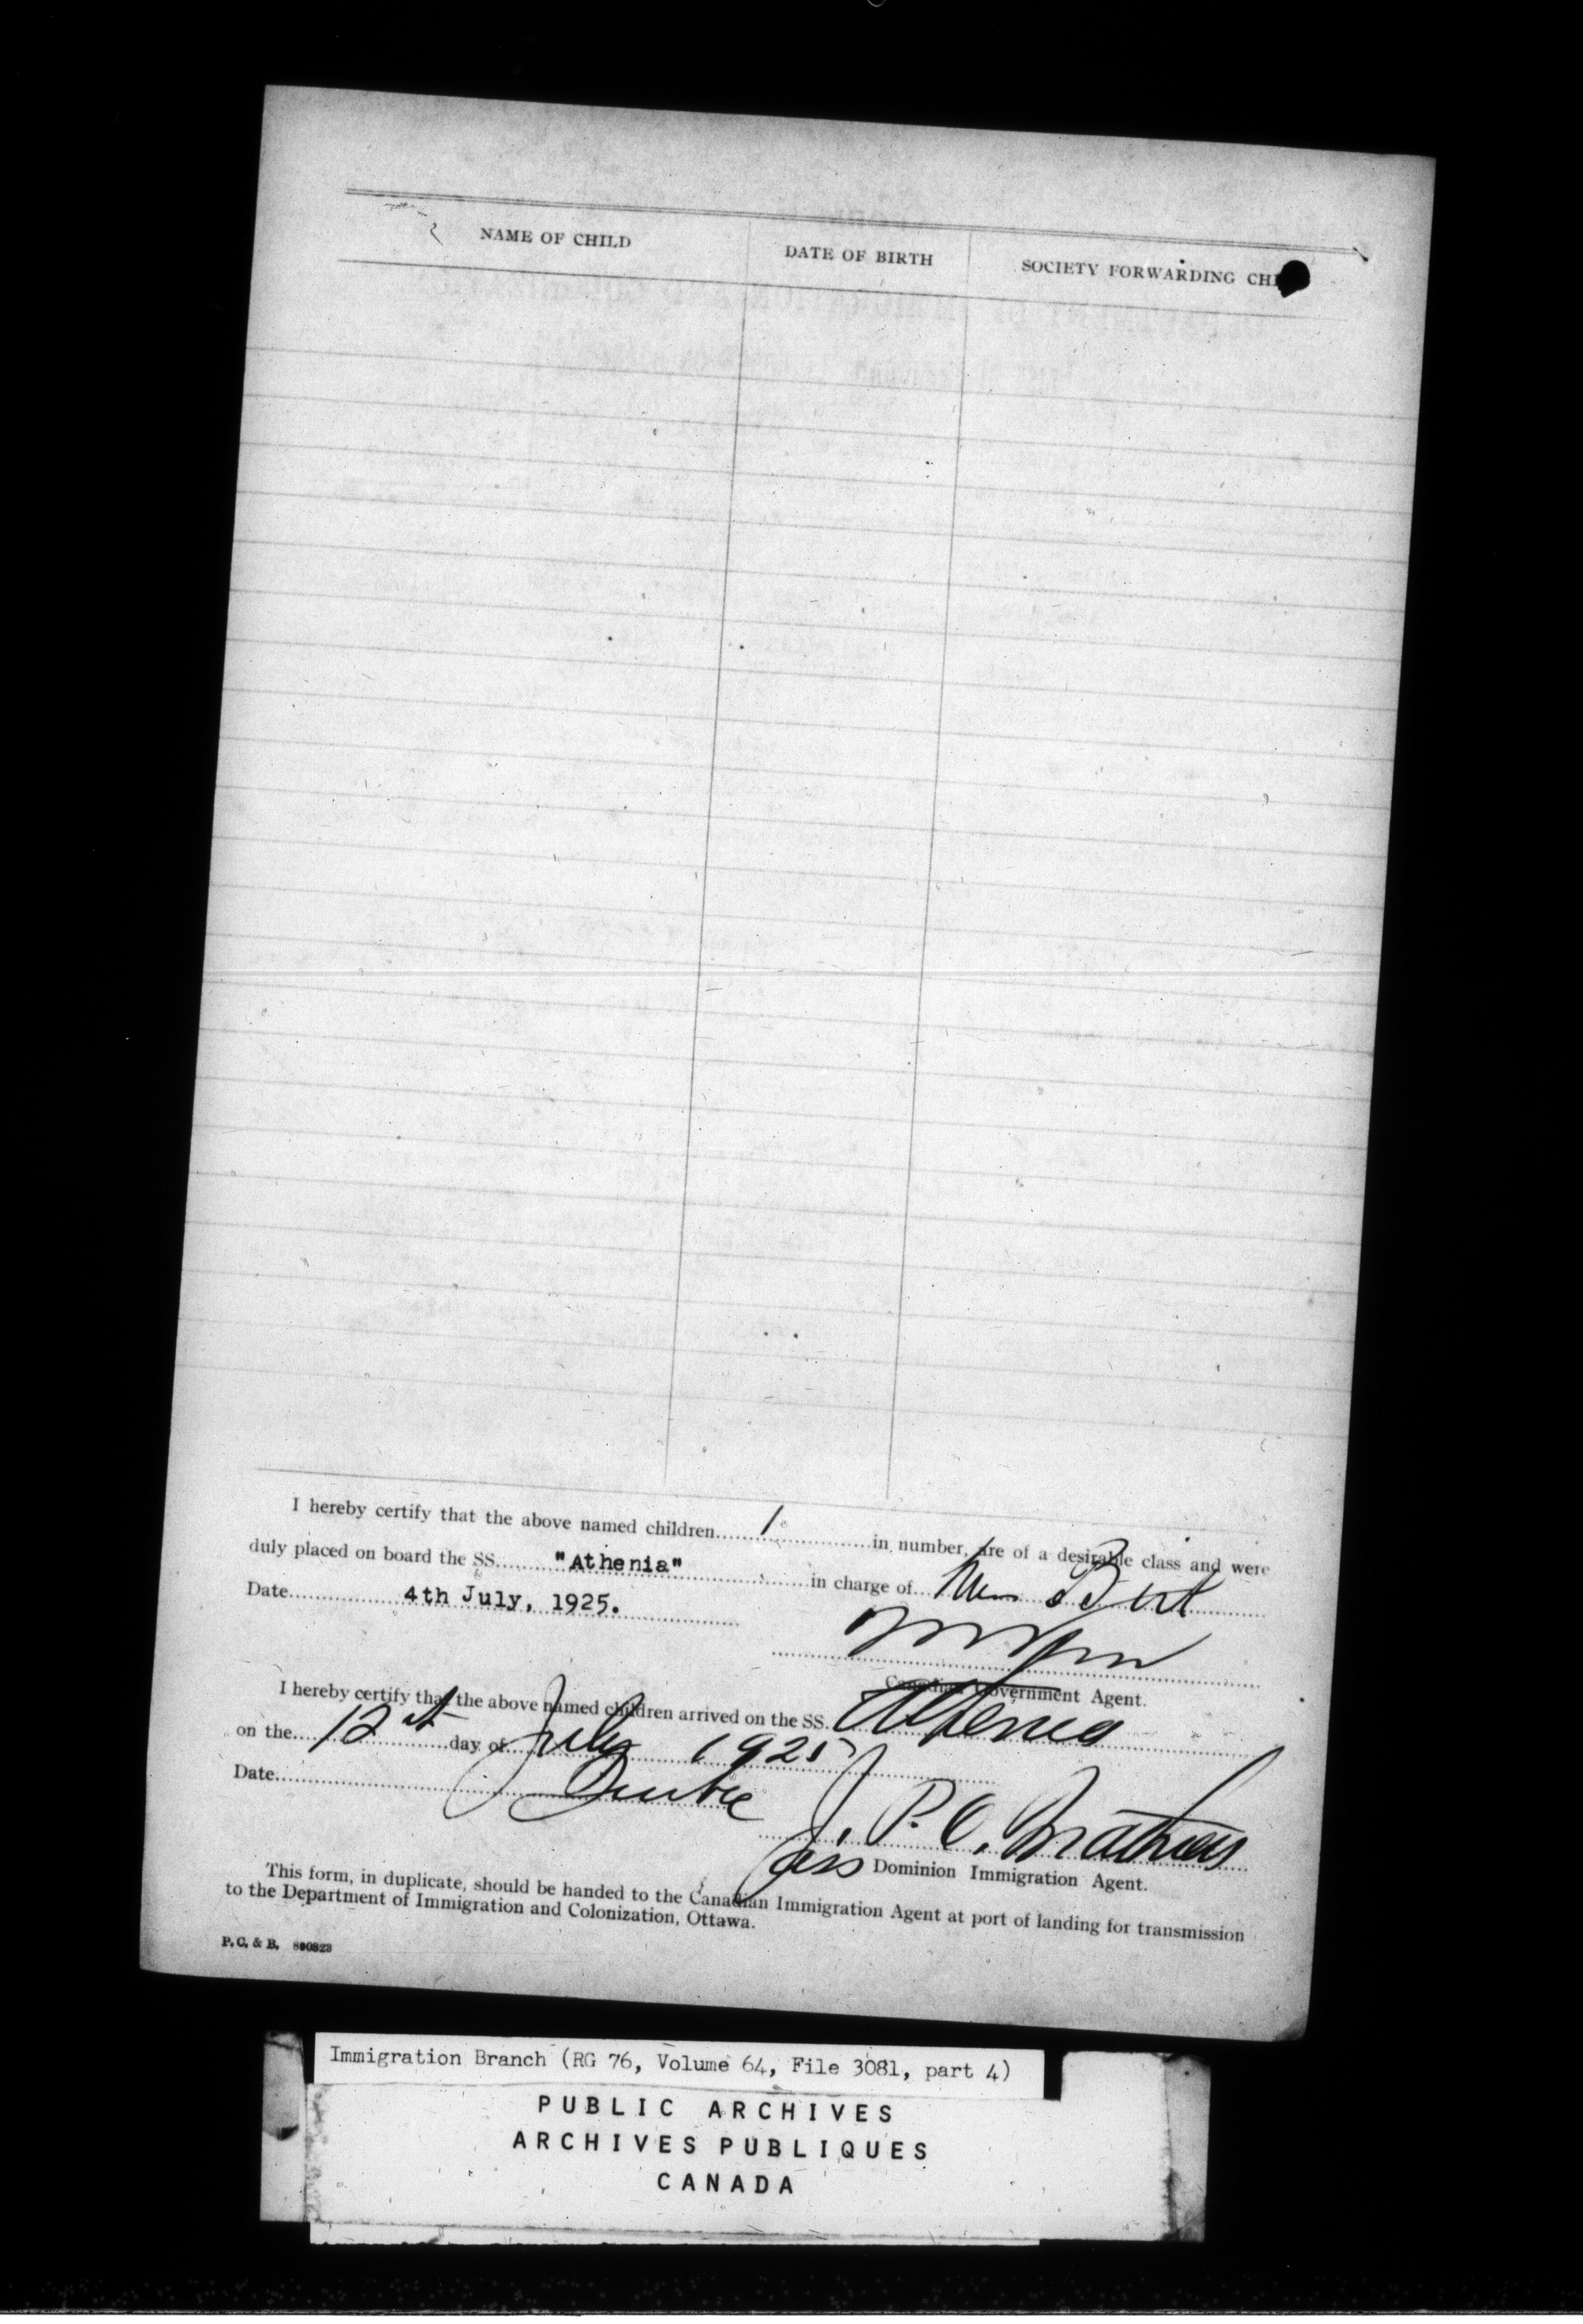 NAME OF CHILD DATE OF BIRTH SOCIETY FORWARDING CHI
I hereby certify that the above named children 1 in number, are of a desirable class and were
duly placed on board the SS. "Athenia" in charge of
Date 4th July, 1925.
Canadian Government Agent.
I hereby certify that the above named children arrived on the SS. Athenia
on the 12th day of July 1925
Date Quebec J. P. O.
Dominion Immigration Agent.
This form, in duplicate, should be handed to the Canadian Immigration Agent at port of landing for transmission
to the Department of Immigration and Colonization, Ottawa.
P. C. & B.
Immigration Branch (RG 76, Volume 64, File 3081, part 4)
PUBLIC ARCHIVES
ARCHIVES PUBLIQUES
CANADA